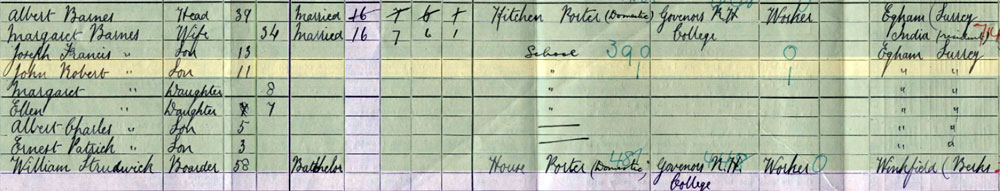 Albert Barnes Head 39 Married 16 7 6 1 Kitchen Porter (Domestic) Govenors R.H. College Worker Egham (Surrey
Margaret Barnes Wife 34 Married 16 7 6 1 India
Joseph Francis " Son 13 School 390 0 Egham Surrey
John Robert " Son 11 " 1 1 " "
Margaret " Daughter 8 " " "
Ellen " Daughter 7 " " "
Albert Charles " Son 5 " "
Ernest Patrick " Son 3 " "
William Strudwick Boarder 58 Batchelor House Porter (Domestic) Govenors R.H. College Worker 0 Winkfield (Berks